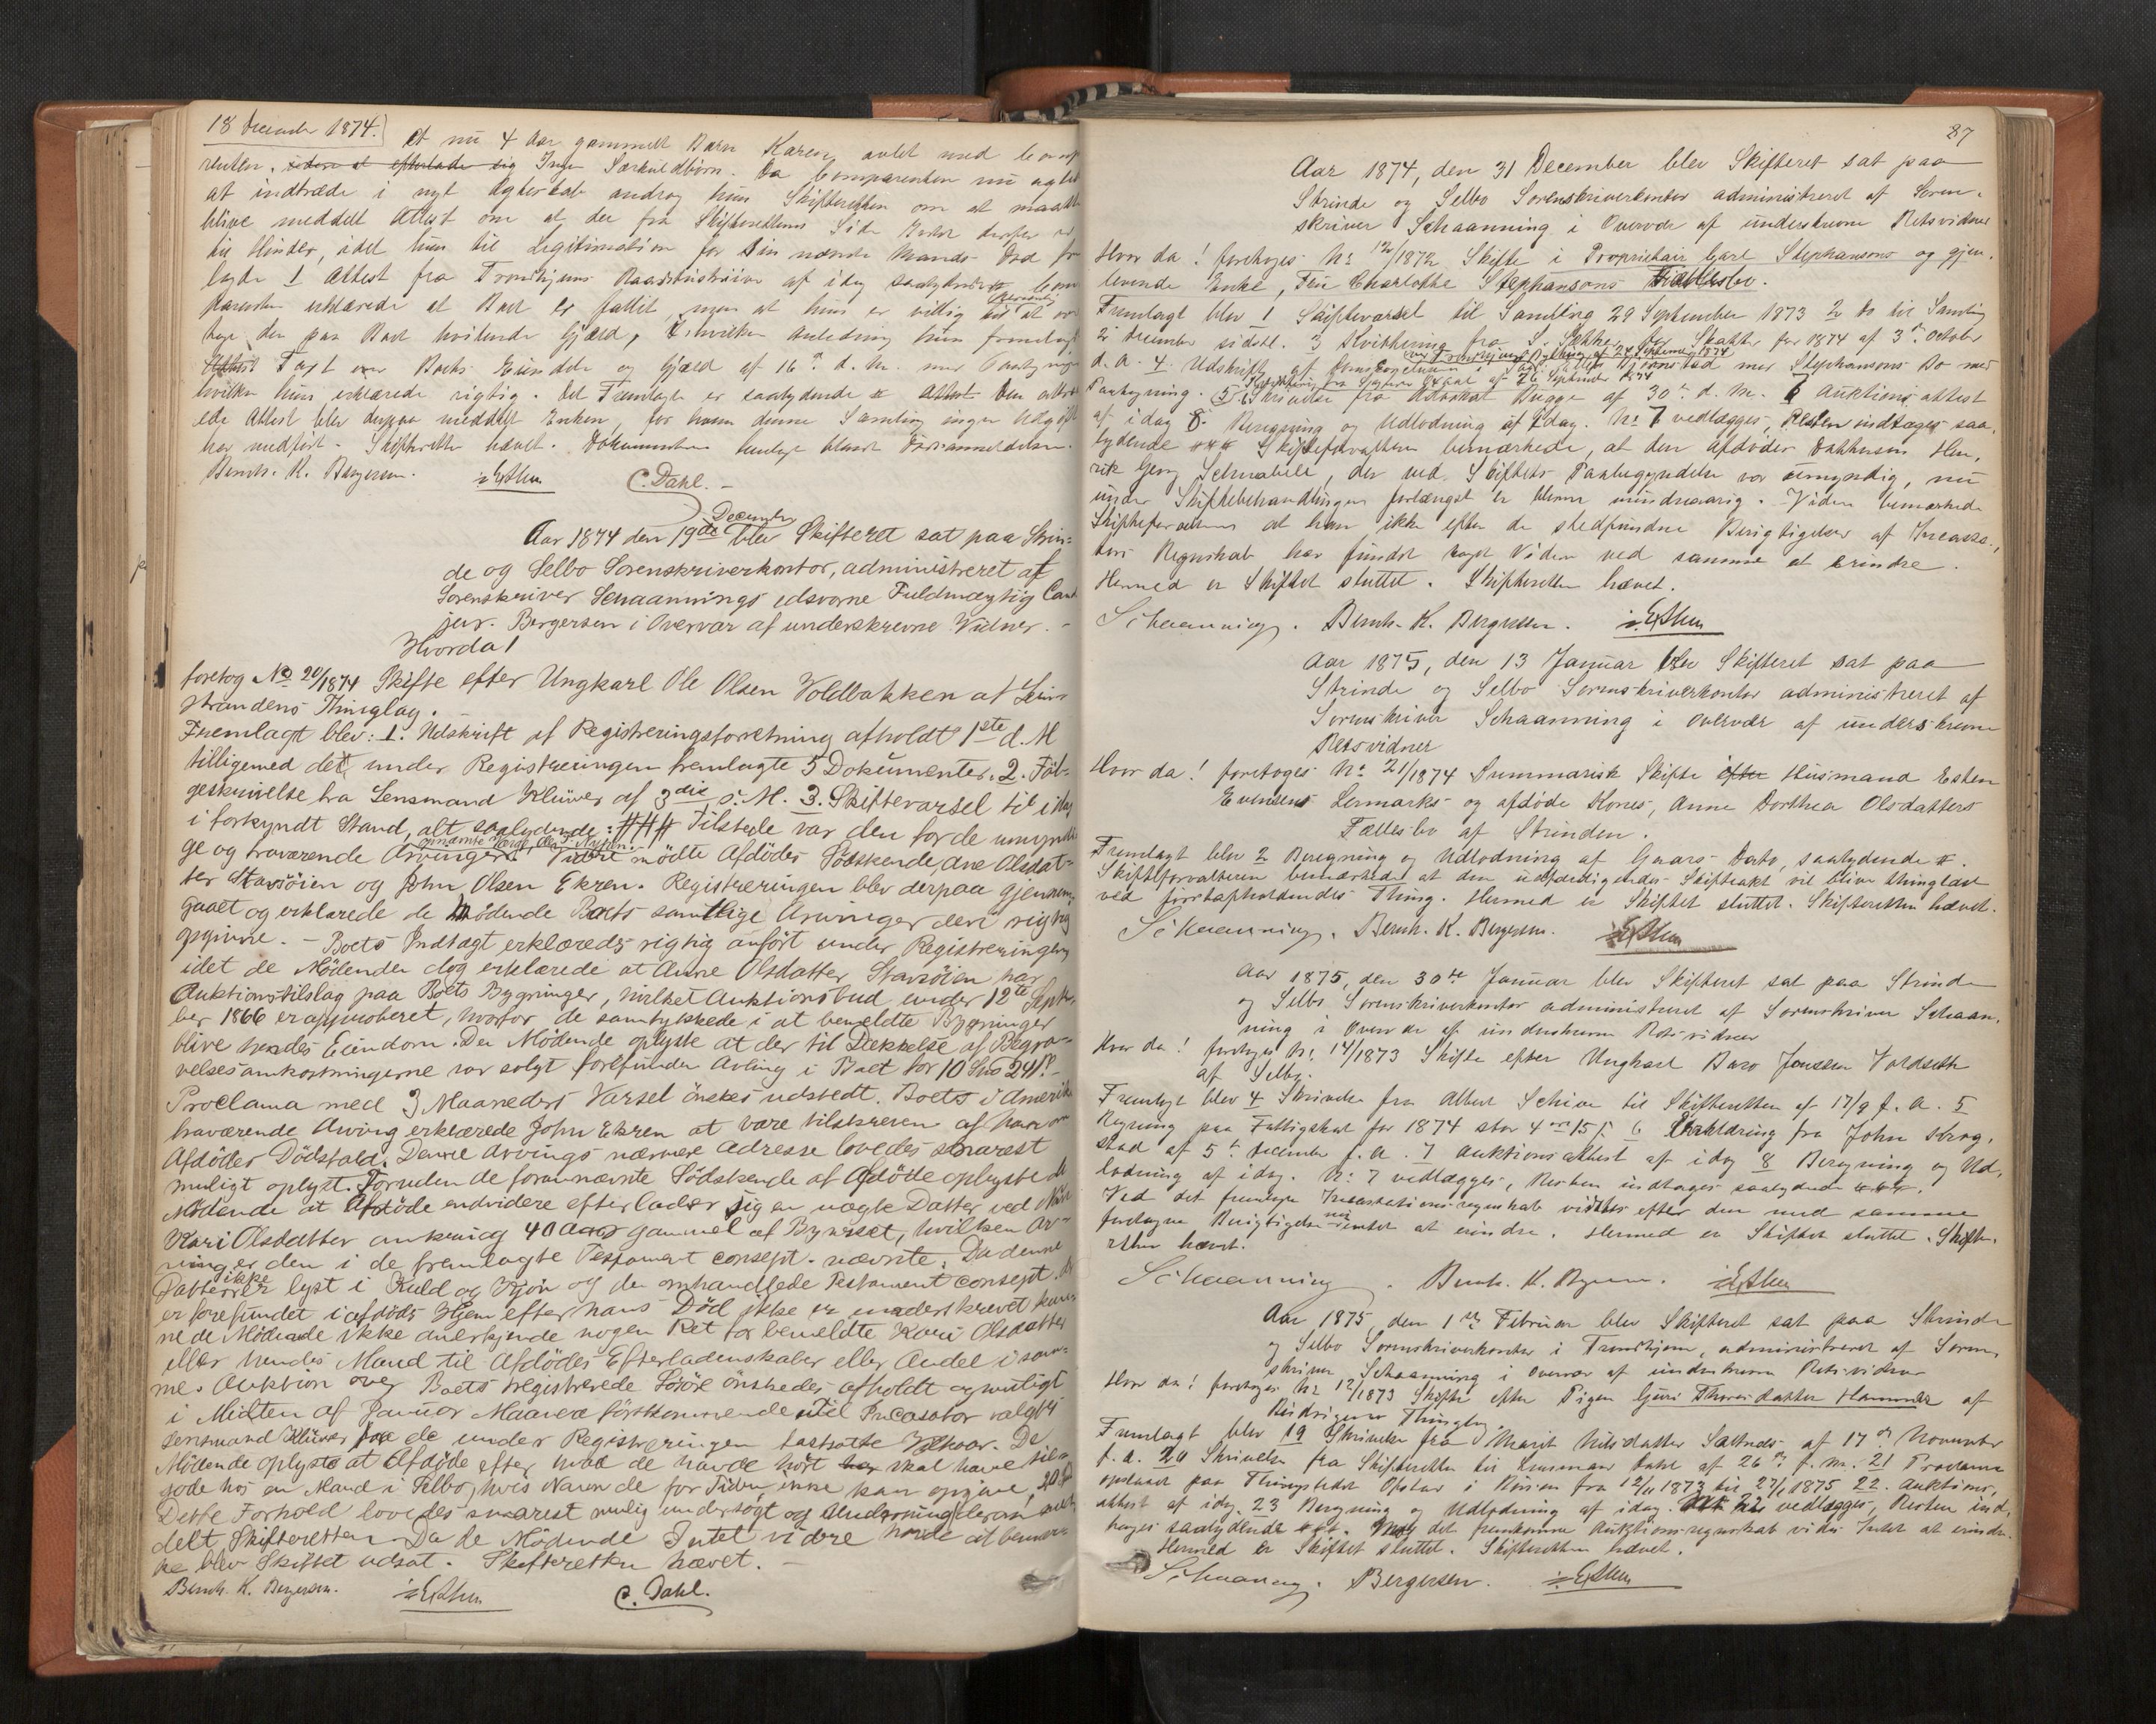 18 December 1874.
et nu 4 Aar gammelt Barn Karen, avlet med Comp
renten. sidste at efterlade sig Ingen Særkuldbørn. Da Comparenten nu agted
at indtræde i nyt Ægteskab androg hun Skifteretten om at maatte
blive meddelt Attest om at der fra Skifterettens Side Intet derfor er
til Hinder, idet hun til Legitimation for sin nævnte Mands Død frem
lagde 1 Attest fra Trondhjems af idag saalydende # Com
parenten erklærede at Boet er fallit, men at hun er villig til at over
tage den paa Boet hvilende Gjæld, i hvilken Anledning hun fremlagde
Attest Taxt over Boets Eiendele og Gjæld af 16de d. M. med Paategning
hvilken hun erklærede rigtig. Det Fremlagte er saalydende # Attest Den
ede Attest blev derpaa meddelt Enken, for hvem denne Samling ingen Udgift
har medført. Skifteretten hævet. Dokumenterne henlagt blandt Dødsanmeldelserne.
Bernh. K. Bergersen. C. Dahl.
December
Aar 1874 den 19de blev Skifteret sat paa Strin=
de og Selbo Sorenskriverkontor, administreret af
Sorenskriver Schaannings edsvorne Fuldmægtig Cand
jur. Bergersen i Overvær af underskrevne Vidner. –
Hvorda!
foretog No 20/1874 Skifte efter Ungkarl Ole Olsen Voldbakken af Lein
strandens Thinglag.
Fremlagt blev: 1. Udskrift af Registreringsforretning afholdt 1ste d. M
tilligemed det under Registreringen fremlagte 5 Dokumenter. 2. Føl=
geskrivelse fra Lensmand Klüwer af 3die s. M. 3. Skiftevarsel til idag
i forkyndt Stand, alt saalydende: ### Tilstede var den for de umyndi
ge og fraværende Arvinger opnævnte Værge, Ole J. Nypan. Videre mødte Afdødes Södskende, Ane Olsdat=
ter Stavsöien og John Olsen Ekren. Registreringen blev derpaa gjennem=
gaaet og erklærede de Mødende Boets samtlige Arvinger deri rigtig
opgivne. – Boets Indtægt erklæredes rigtig anført under Registreringen
idet de Mödende dog erklærede at Anne Olsdatter Stavsöien har
Auktionstilslag paa Boets Bygninger, hvilket Auktionsbud under 12te Septem
ber 1866 er approberet, hvorfor de samtykkede i at bemeldte Bygninger
blive hendes Eiendom. De Mødende oplyste at der til Dækkelse af Begra=
velsesomkostningerne var solgt forefunden Avling i Boet for 10 Spd 24 s. –
Proclama med 3 Maaneders Varsel önskes udstedt. Boets i Amerika
fraværende Arving erklærede John Ekren at være tilskreven af ham om
Afdödes Dödsfald. Denne Arvings nærmere Adresse lovedes snarest
muligt oplyst. Foruden de forannævnte Södskende af Afdöde oplyste de
Mødende at Afdöde endvidere efterlader sig en uægte Datter ved Navn
Kari Olsdatter omkring 40 Aar gammel af Bynæset, hvilken Ar=
ving er den i de fremlagte Testament consept. nævnte. Da denne
Datter ikke er lyst i Kuld og Kjön og den omhandlede Testament consept, der
er forefundet i afdödes Hjem efter hans Död ikke er underskrevet kun=
ne de Mödende ikke anerkjende nogen Ret for bemeldte Kari Olsdatter
eller hendes Mand til Afdödes Efterladenskaber eller Andel i sam=
me. Auktion over Boets registrerede Løsøre önskedes afholdt og muligt
i Midten af Januar Maaned förstkommende, til Incasator valgtes
Lensmand Klüwer paa de under Registreringen fastsatte Vilkaar. De
Mödende oplyste at Afdöde efter hvad de havde hört har skal have til=
gode hos en Mand i Selbo, hvis Navn de for Tiden ikke kan opgive, 20 Spd
Dette Forhold lovedes snarest mulig undersøgt og Underretning derom med
delt Skifteretten. Da de Mødende Intet videre havde at bemær=
ke blev Skiftet udsat. Skifteretten hævet. –
Bernh. K. Bergersen. C. Dahl.
87
Aar 1874, den 31 December blev Skifteret sat paa
Strinde og Selbo Sorenskriverkontor administreret af Soren=
skriver Schaanning i Overvær af underskrevne Retsvidner
Hvor da! foretoges No 12/1872 Skifte i Proprietair Carl Stephansens og gjen=
levende Enke, Frue Charlotte Stephansens Fællesbo.
Fremlagt blev 1 Skiftevarsel til Samling 29 September 1873 2 do til Samling
2 December sidstl. 3 Kvittering fra S. Sekker for Skatter for 1874 af 3die October
ved Trondhjems Byting af 24 September 1874
d. A. 4. Udskrift af i Sag: Bjørnstad mod Stephansens Bo med
af 26 September 1874
Paategning. 5 6 Skrivelse fra Advokat Bugge af 30te d. M. 7 Auktionsattest
af idag 8 Beregning og Udlodning af idag. No 7 vedlægges, Resten indtages saa=
lydende ### Skifteforvalteren bemærkede, at den afdødes Dattersøn Hen=
rik Georg Schnabele, der ved Skiftets Paabegyndelse var umyndig, nu
under Skiftebehandlingen forlængst er bleven mindreaarig. Videre bemærkede
Skifteforvalteren at han ikke efter de stedfundne Berigtigelser af Incassa=
tors Regnskab har fundet noget Videre ved samme at erindre.
Hermed er Skiftet sluttet. Skifteretten hævet.
Schaanning. Bernh. K. Bergersen.
Aar 1875, den 13 Januar blev Skifteret sat paa
Strinde og Selbo Sorenskriverkontor administreret af
Sorenskriver Schaanning i Overvær af underskrevne
Retsvidner
Hvor da! foretoges No 21/1874 Summarisk Skifte efter Husmand Esten
Evensens Lermarks- og afdøde Kones, Anne Dorthea Olsdatters
Fællesbo af Strinden.
Fremlagt blev 2 Beregning og Udlodning af Gaars Dato, saalydende #.
Skifteforvalteren bemærkede at den udfærdigendes Skifteakt vil blive thinglæst
ved førstafholdendes Thing. Hermed er Skiftet sluttet. Skifteretten hævet.
Schaanning. Bernh. K. Bergersen.
Aar 1875, den 30te Januar blev Skifteret sat paa Strinde
og Selbo Sorenskriverkontor administreret af Sorenskriver Schaan=
ning i Overvær af underskrevne Retsvidner
Hvor da! foretoges No 14/1873 Skifte efter Ungkarl Baro Jonsen Voldseth
af Selbo.
Fremlagt blev 4 Skrivelse fra Albert Schive til Skifteretten af 17/9 f. A. 5
Regning paa Fattigskat for 1874 stor 4 ort 15 s. 6 Erklæring fra John
stad af 5te December f. A. 7 Auktionsattest af idag 8 Beregning og Ud=
lodning af idag. No 7 vedlægges, Resten indtages saalydende ###.
Ved det fremlagte Incassationsregnskab vidstes efter den med samme
foretagne Berigtigelse nu Intet at erindre. Hermed er Skiftet sluttet. Skifte=
retten hævet.
Schaanning. Bernh. K. Bergersen.
Aar 1875, den 1ste Februar blev Skifteret sat paa Strinde
og Selbo Sorenskriverkontor i Trondhjem, administreret af Soren=
skriver Schaanning i Overvær af underskrevne Retsvidner
Hvor da! foretoges No 12/1873 Skifte efter Pigen Guri Thoresdatter Hammer af
Thinglag.
Fremlagt blev 19 Skrivelse fra Marit Nilsdatter af 17de November
f. A. 20 Skrivelse fra Skifteretten til Lensmand af 26de f. M. 21 Proclama
opslaaet paa Thingstedet Opslag i Børsen fra 12/11 1873 til 27/1 1875 22. Auktions=
attest af idag. 23 Beregning og Udlodning af idag. No 22 vedlægges, Resten ind=
tages saalydende ###. Mod det fremkomne Auktionsregnskab vides Intet at erindre.
Hermed er Skiftet sluttet. Skifteretten hævet.
Schaanning. Bergersen.